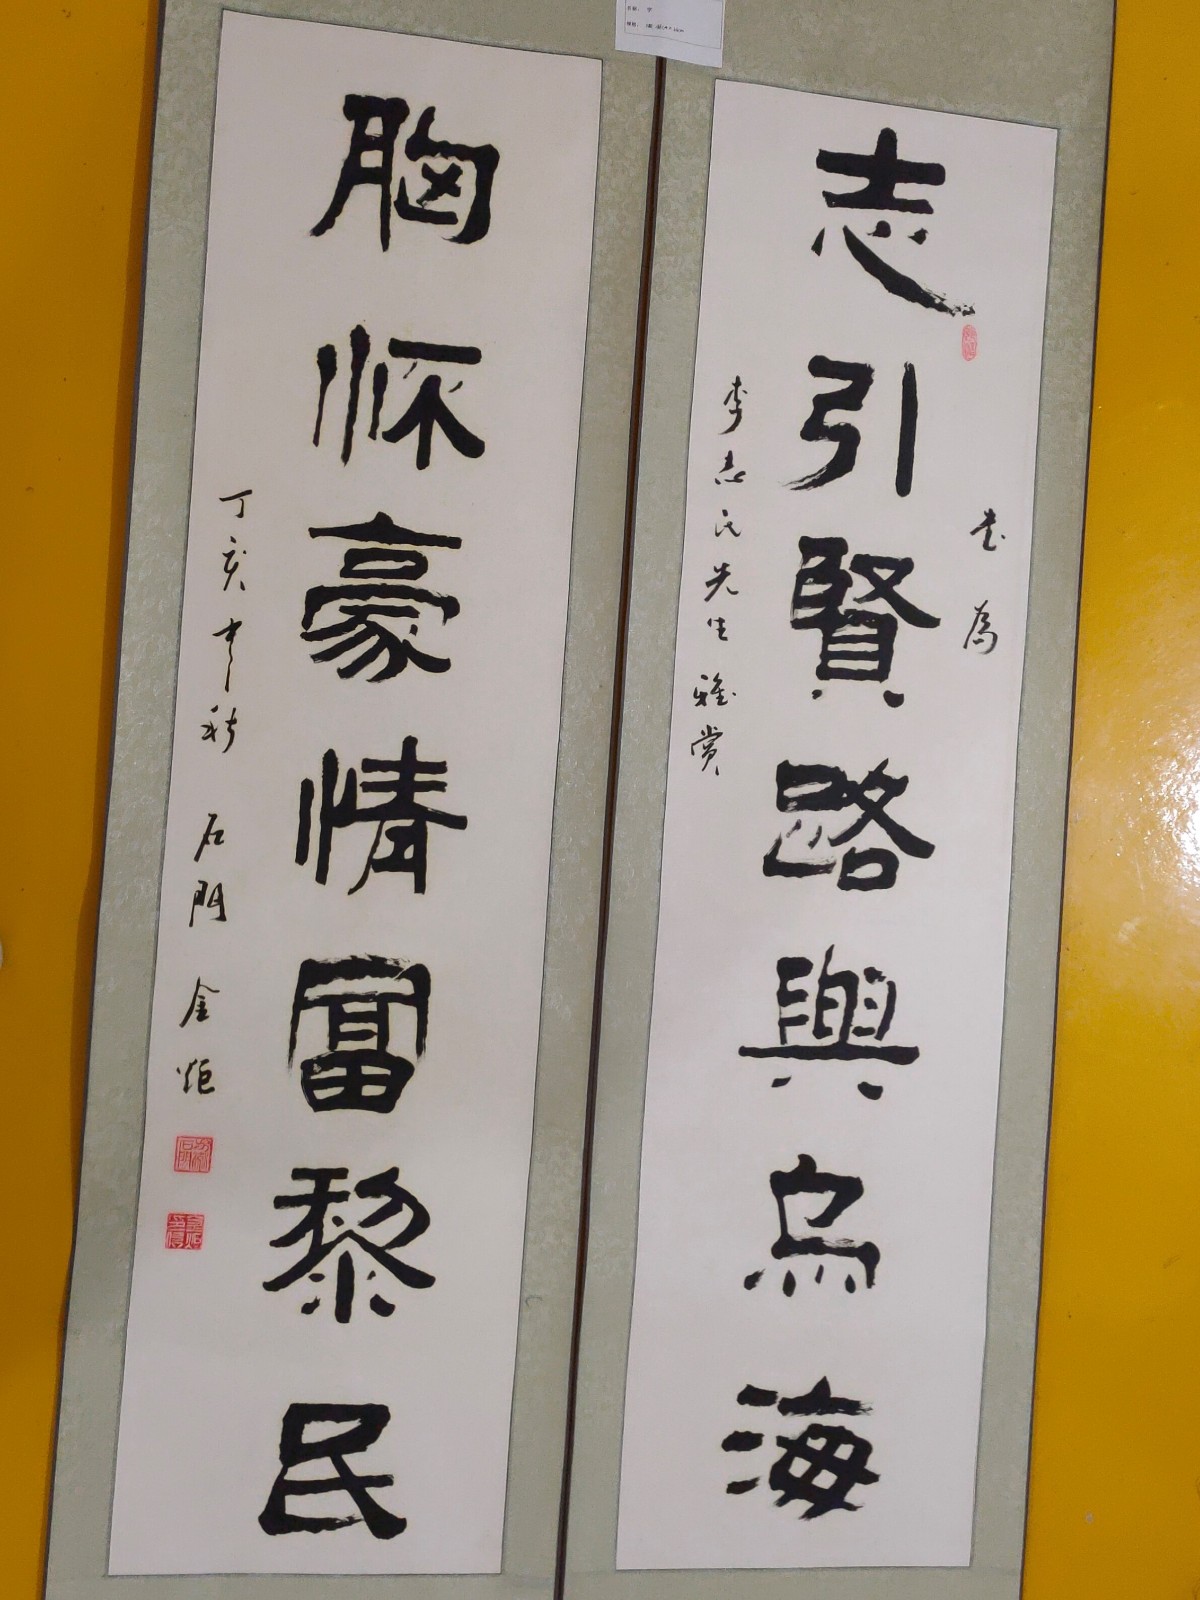 志引賢路興烏海
书為
李志民先生雅賞
胸怀豪情富黎民
丁亥中秋 石門 金炬